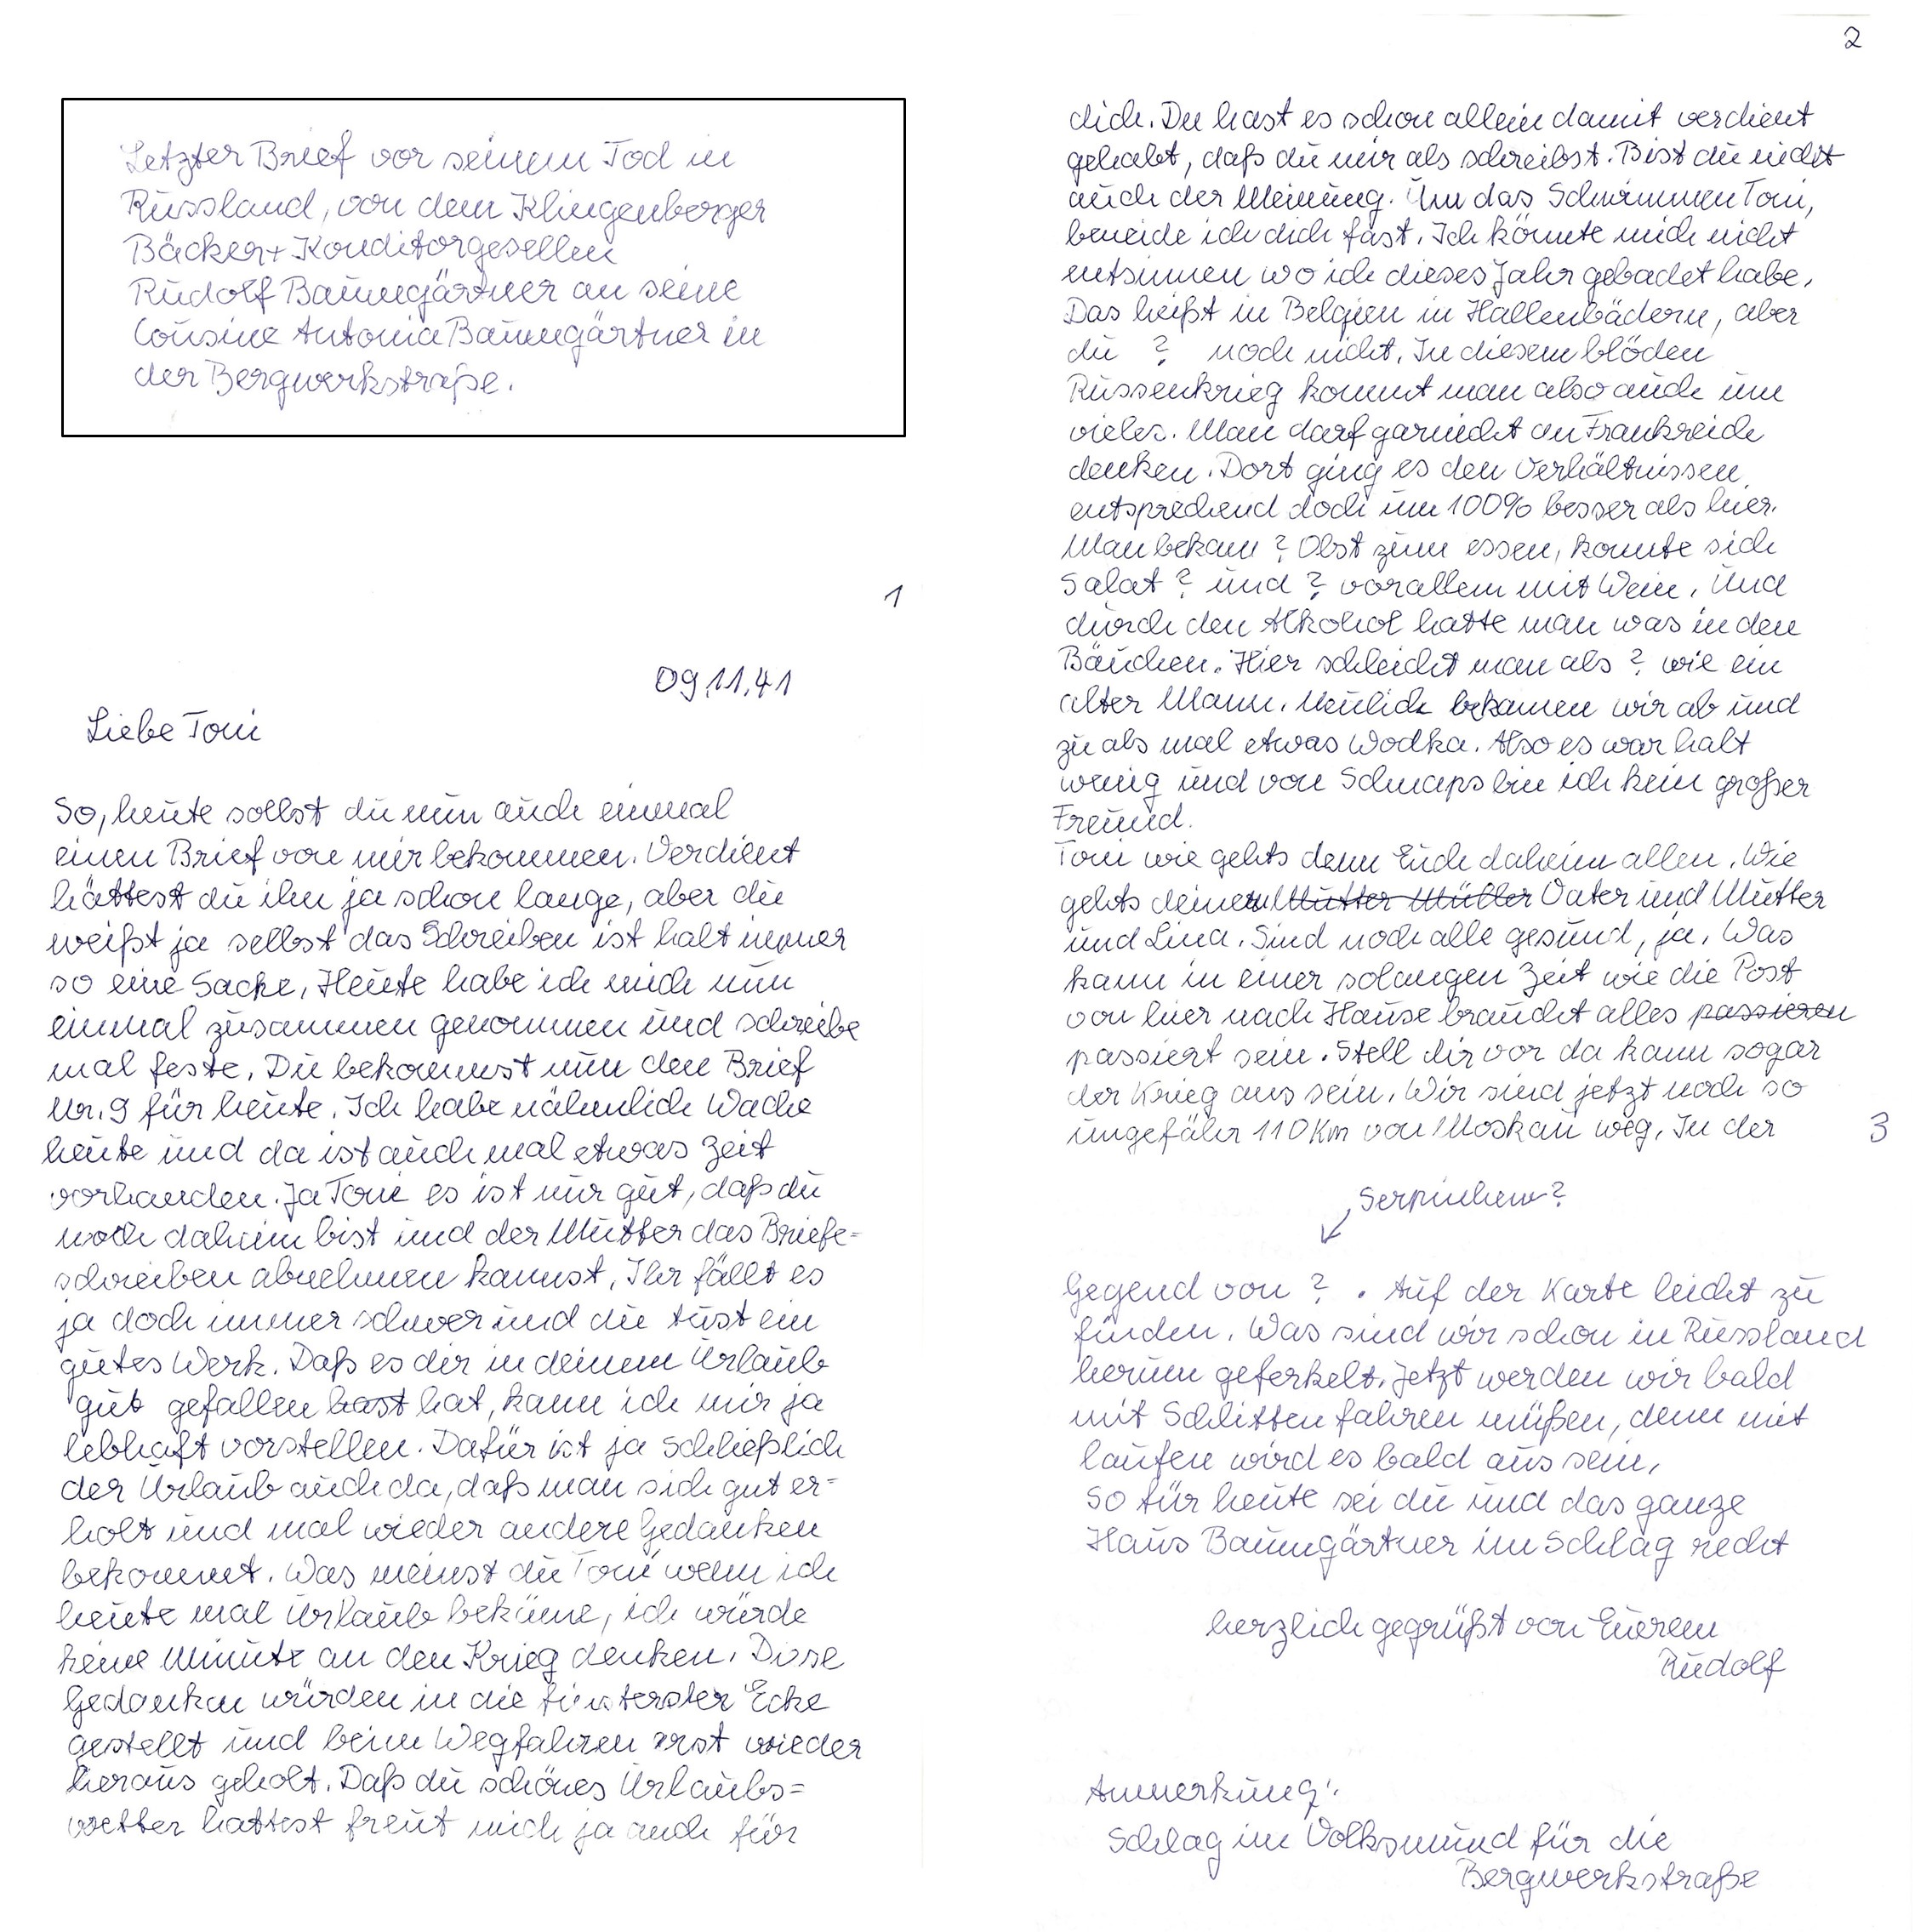 Letzter Brief vor seinem Tod in
Russland, von dem Klingenberger
Bäcker+Konditorgesellen
Rudolf Baumgärtner an seine
Cousine Antonia Baumgärtner in
der Bergwerkstraße.
1
09.11.41
Liebe Toni
So, heute sollst du nun auch einmal
einen Brief von mir bekommen. Verdient
hättest du ihn ja schon lange, aber du
weißt ja selbst das Schreiben ist halt immer
so eine Sache, Heute habe ich mich nun
einmal zusammen genommen und schreibe
mal feste. Du bekommst nun den Brief
Nr. 9 für heute. Ich habe nähmlich Wache
heute und da ist auch mal etwas Zeit
vorhanden. Ja Toni es ist nur gut, daß du
noch daheim bist und der Mutter das Briefe=
schreiben abnehmen kannst. Ihr fällt es
ja doch immer schwer und du tust ein
gutes Werk. Daß es dir in deinem Urlaub
gut gefallen hast hat, kann ich mir ja
lebhaft vorstellen. Dafür ist ja schließlich
der Urlaub auch da, daß man sich gut er=
holt und mal wieder andere Gedanken
bekommt. Was meinst du Toni wenn ich
heute mal Urlaub bekäme, ich würde
keine Minute an den Krieg denken. Diese
Gedanken würden in die finsterster Ecke
gestellt und beim Wegfahren erst wieder
heraus geholt. Daß du schönes Urlaubs=
wetter hattest freut mich ja auch für
2
dich. Du hast es schon allein damit verdient
gehabt, daß du mir als schreibst. Bist du nicht
auch der Meinung. Um das Schwimmen Toni,
beneide ich dich fast. Ich könnte mich nicht
entsinnen wo ich dieses Jahr gebadet habe.
Das heißt in Belgien in Hallenbädern, aber
du ? noch nicht. In diesem blöden
Russenkrieg kommt man also auch um
vieles. Man darf garnicht an Frankreich
denken. Dort ging es den Verhältnissen
entsprechend doch um 100% besser als hier.
Man bekam ? Obst zum essen, konnte sich
Salat ? und ? vorallem mit Wein. Und
durch den Alkohol hatte man was in den
Bäuchen. Hier schleicht man als ? wie ein
alter Mann. Neulich bekamen wir ab und
zu als mal etwas Wodka. Also es war halt
wenig und von Schnaps bin ich kein großer
Freund.
Toni wie gehts denn Euch daheim allen. Wie
gehts deinem Mutter Müller Vater und Mutter
und Lina. Sind noch alle gesund, ja. Was
kann in einer solangen Zeit wie die Post
von hier nach Hause braucht alles passieren
passiert sein. Stell dir vor da kann sogar
der Krieg aus sein. Wir sind jetzt noch so
ungefähr 110 Km von Moskau weg. In der
3
Serpuchow?
Gegend von ? . Auf der Karte leicht zu
finden. Was sind wir schon in Russland
herum geferkelt. Jetzt werden wir bald
mit Schlitten fahren müßen, denn mit
laufen wird es bald aus sein.
So für heute sei du und das ganze
Haus Baumgärtner im Schlag recht
herzlich gegrüßt von Euerem
Rudolf
Anmerkung:
Schlag im Volksmund für die
Bergwerkstraße